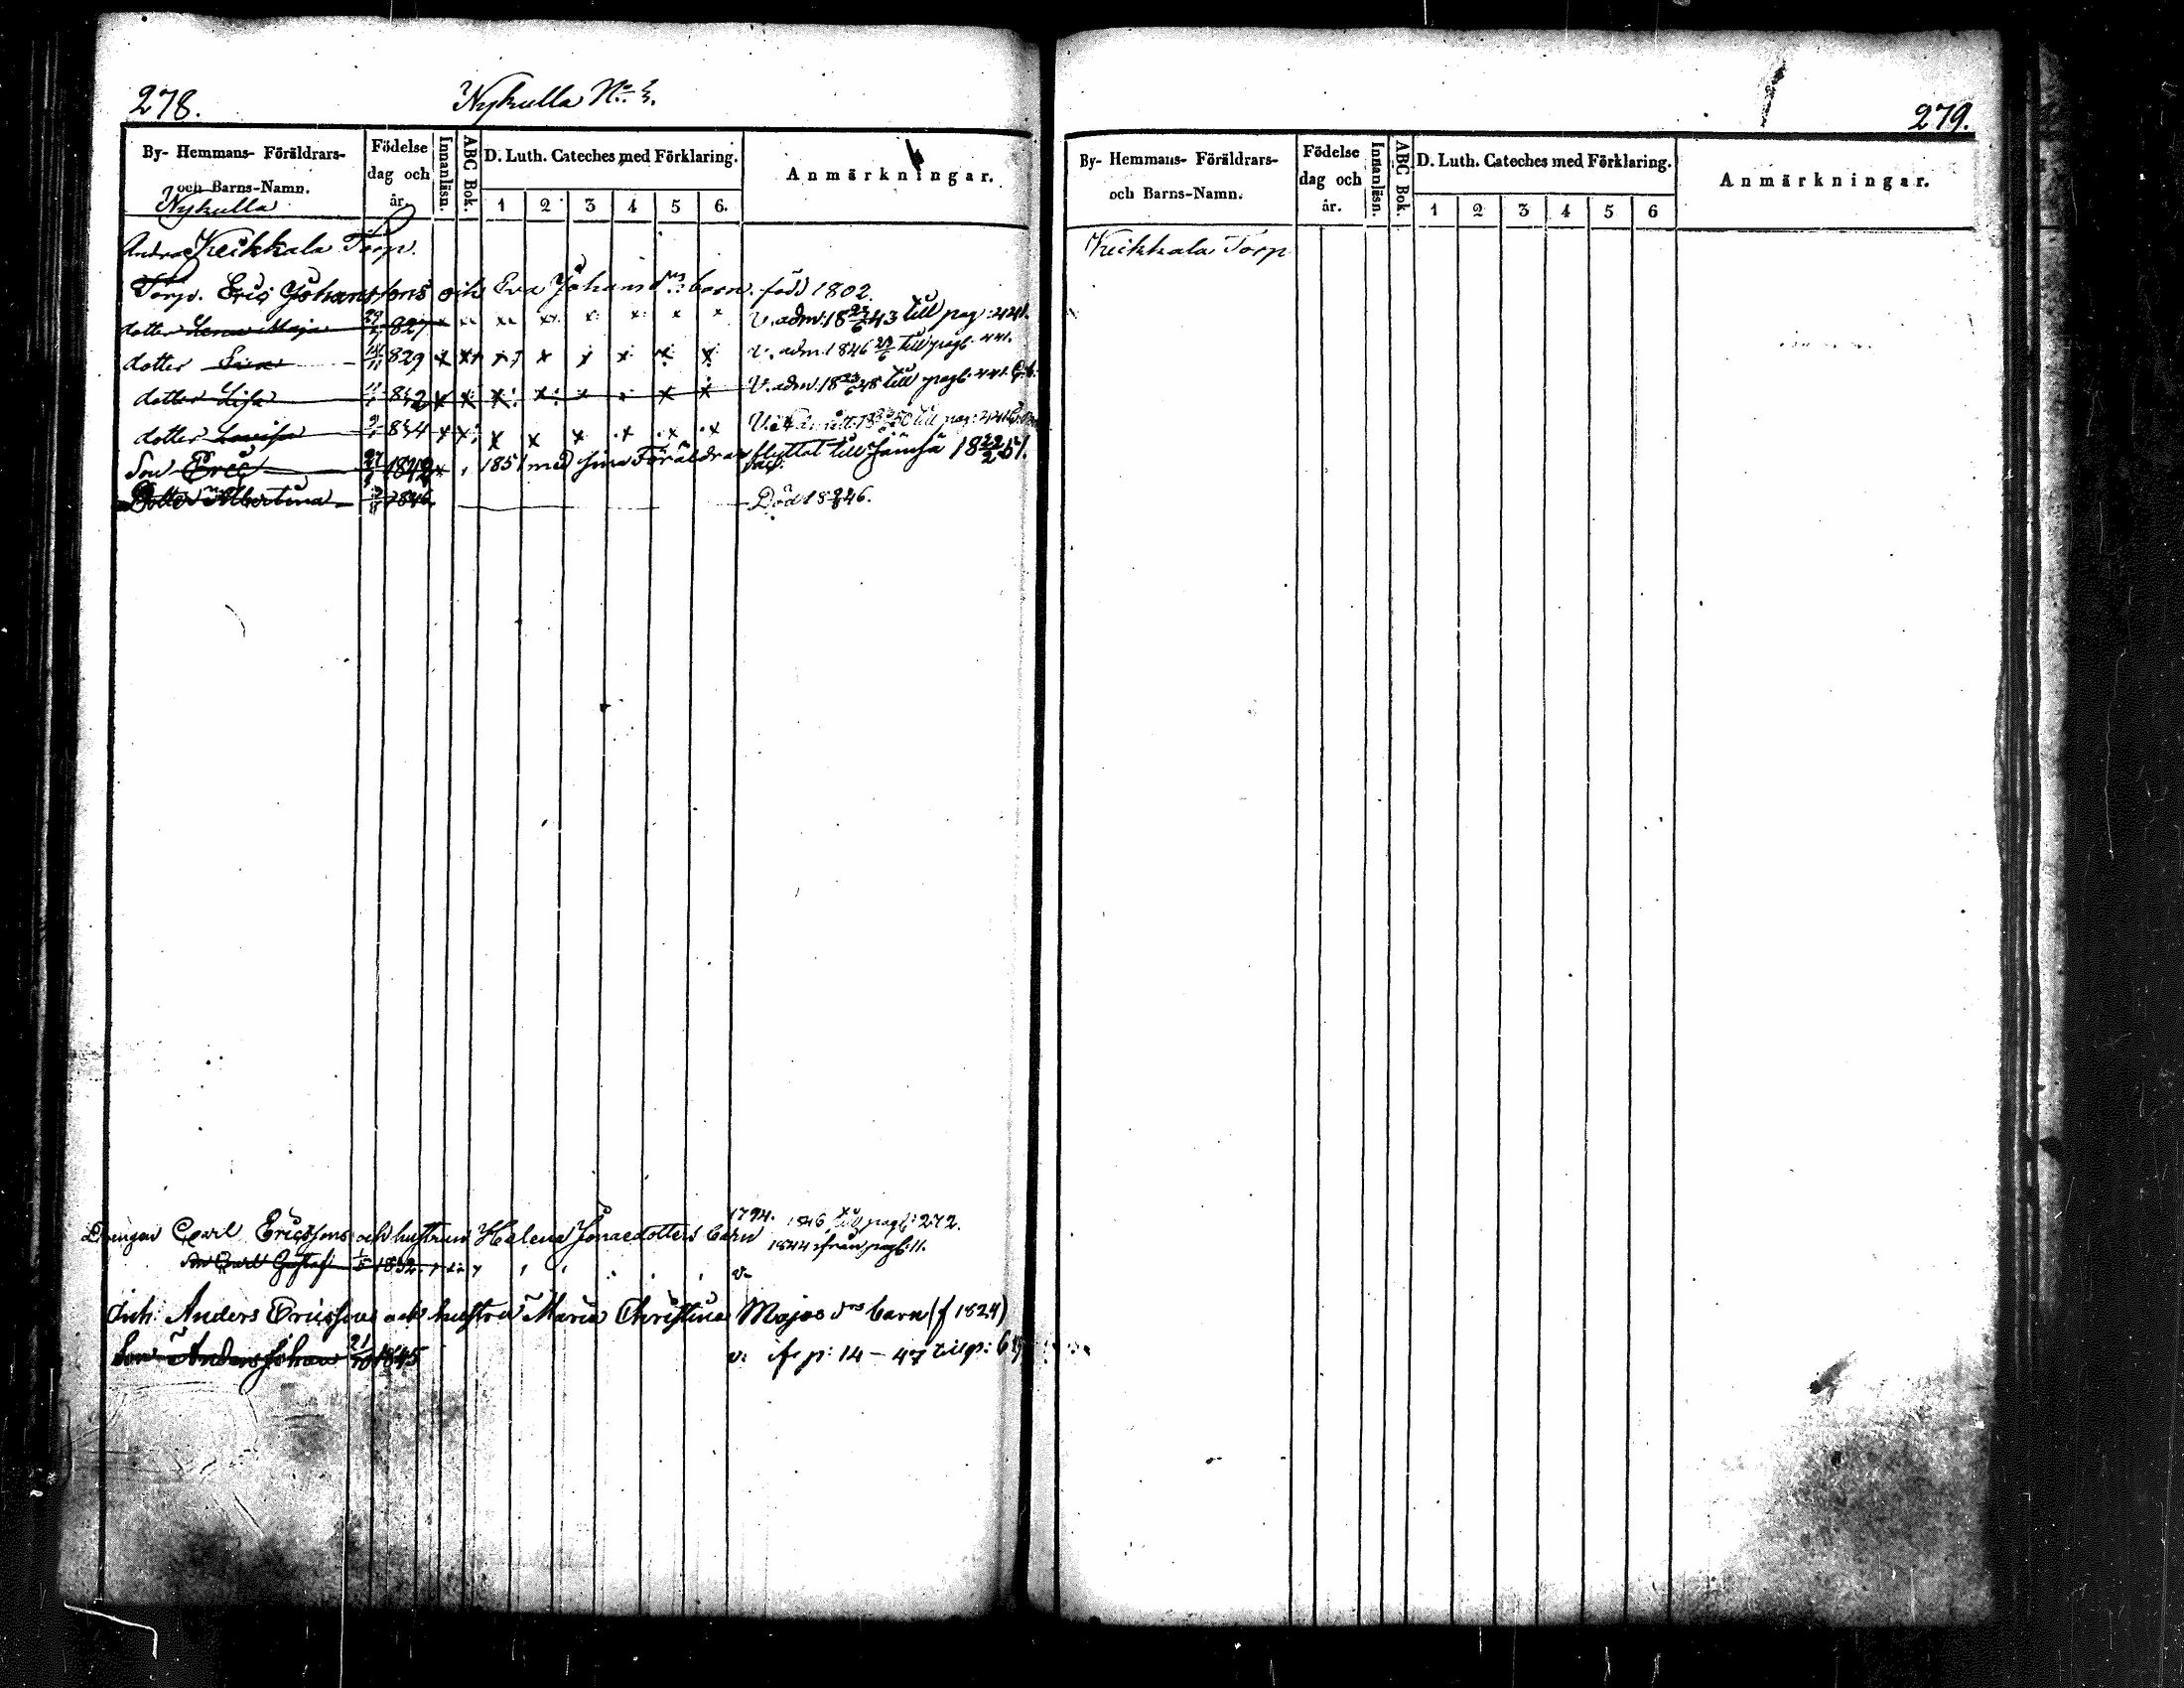 278.
Nykulla No
By- Hemmans- Föräldrars- och Barns-Namn.
Födelse dag och år.
Innanläsn.
ABC Bok.
D. Luth. Cateches med Förklaring.
1 2 3 4 5 6.
Anmärkningar.
Nykulla
Andra Keikkala Torp.
Torp. Eric Johanssons och Eva Johans drs barn. född 1802.
dotter Lena Maja 827 x x x x x x x x V. adm. 18 23/6 43 till pag: 441.
dotter 829 x x x x x x x x V. adm. 1846 till pag. 441.
dotter Lisa 832 x x x x x x x V. adm. 18 48 till pag. 441
dotter Lovisa 834 x x x x x x x x 50 till pag: 441
Son Eric 1842 x 1851 med sina Föräldrar flyttat till Jämsä 18 22/2 51.
Dotter Albertina 1846 Död 18 46.
1794. 1846 till pag: 272.
Drengen Carl Ericssons och hustrun Helena Jonaedotters barn
1844 ifrån pag: 11.
son Carl Gustaf 1832 v.
Inh: Anders Ericsson och hustru Maria Christina Majas drs barn (f 1824)
Son Anders Johan 21/10 1845 v. ifr p: 14 - 47 till p:
279.
By- Hemmans- Föräldrars- och Barns-Namn.
Födelse dag och år.
Innanläsn.
ABC Bok.
D. Luth. Cateches med Förklaring.
1 2 3 4 5 6
Anmärkningar.
Keikkala Torp